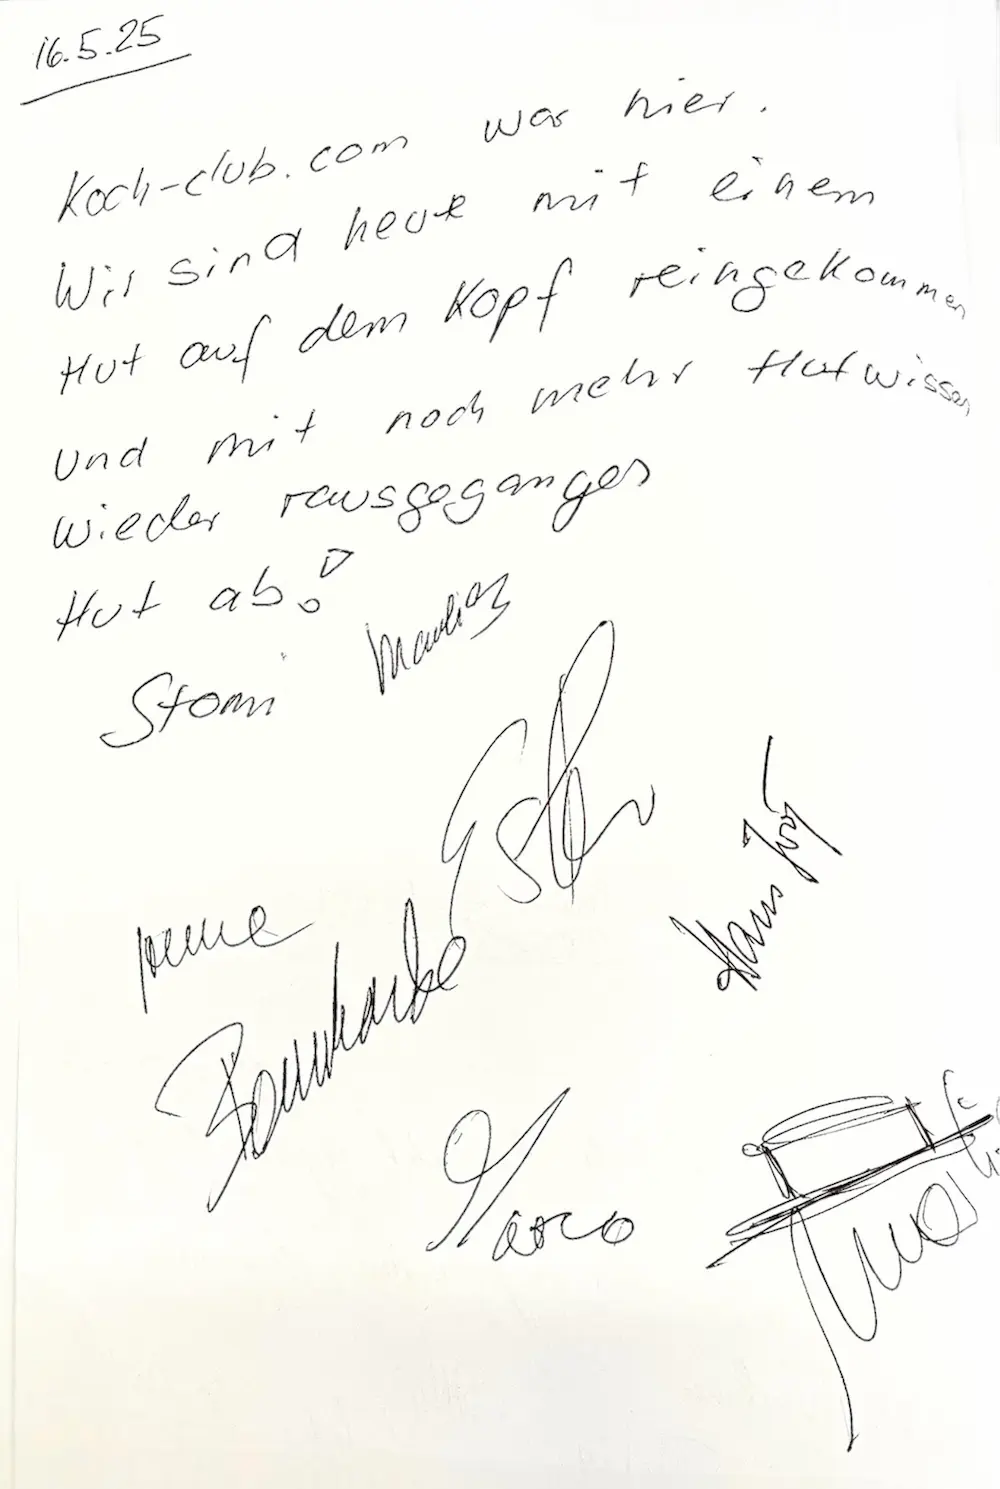 16.5.25
Koch-club.com war hier.
Wir sind heute mit einem
Hut auf dem Kopf reingekommen
und mit noch mehr Hutwissen
wieder rausgegangen
Hut ab!
Stomi
Hans Jörg
Marco